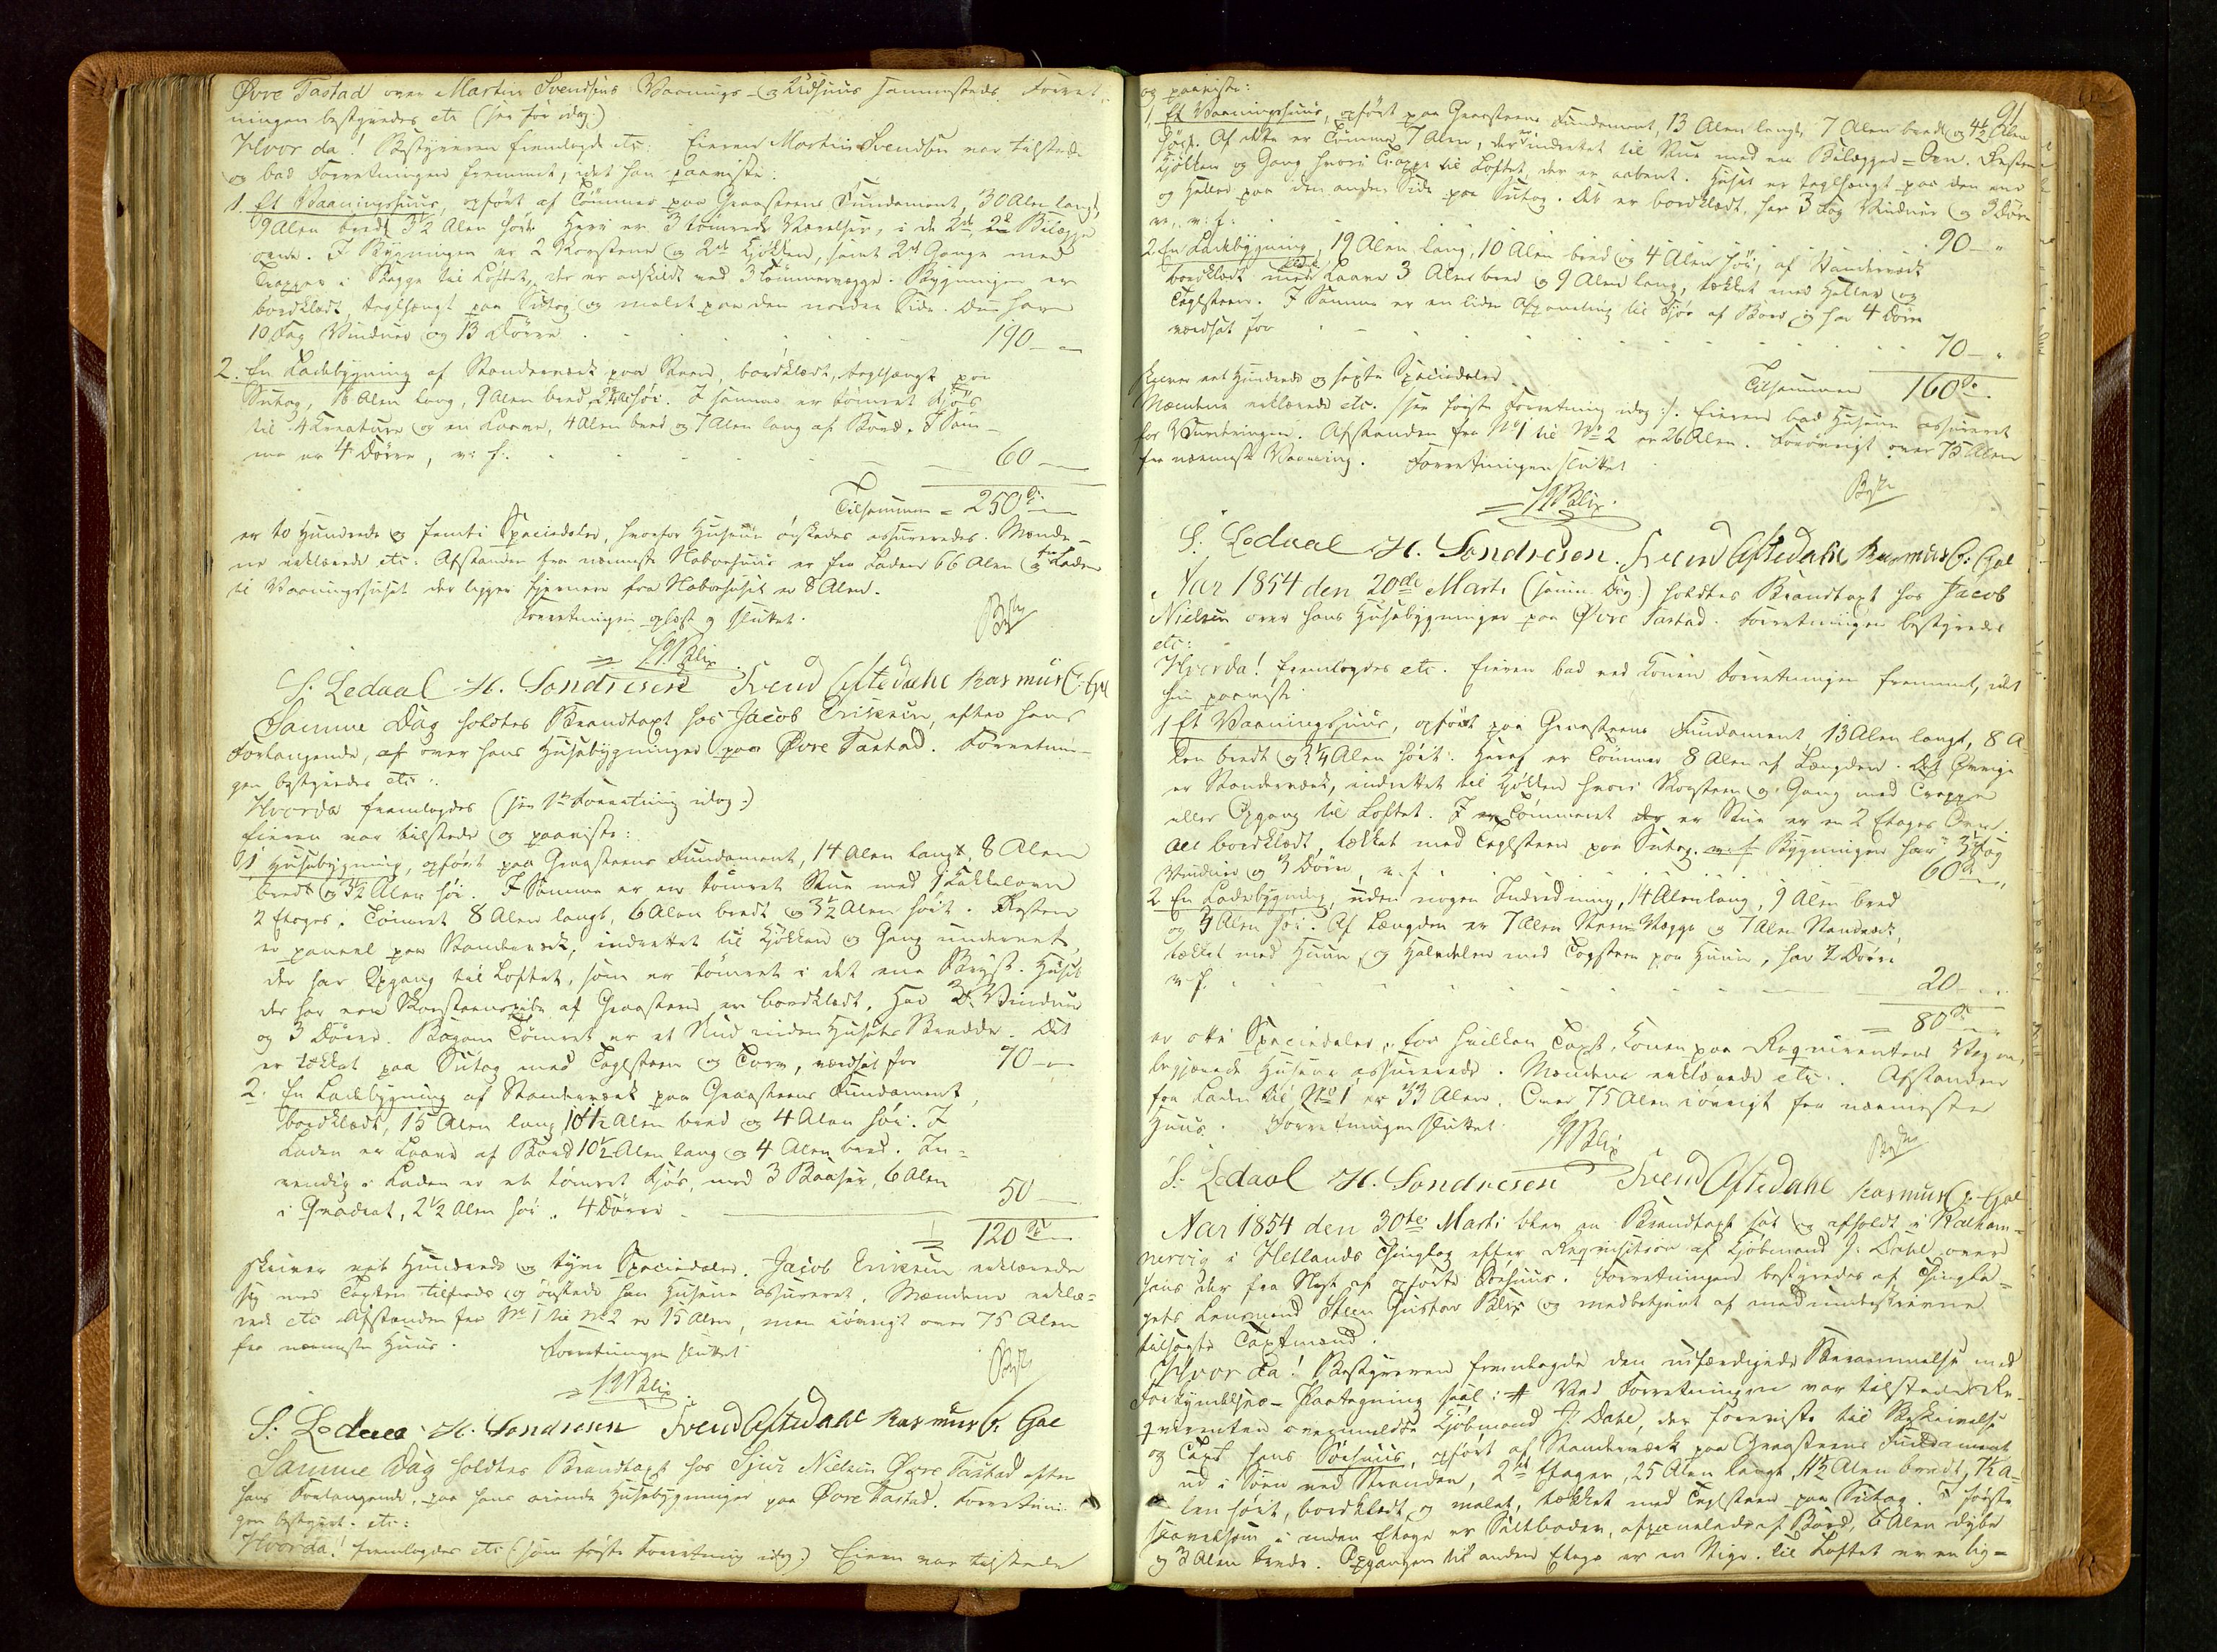 Øvre Tastad over Martin Svendsens Vaanings- og Ildhuus sammesteds. Forret-
ningen bestyredes etc (see før idag.)
Hvor da! Bestyreren fremlagde etc. Eieren Martin Svendsen var tilstede
og bad Forretningen fremmet, idet han paaviste:
1. Et Vaaningshuus, opført af Tømmer paa Graasteens Fundament, 30 Alen langt,
9 Alen bredt 3½ Alen høit. Heri er 3 tømrede Værelser, i de 2de Bilægger
ovne. I Bygningen er 2 Skorstene og 2de Kjøkken, samt 2de Gange med
Trapper i Begge til Loftet, der er adskildt med 3 Tømmervægge. Bygningen er
bordklædt, teglhængt paa Sutag og malet paa den nordre Side. Den har
10 Fag Vinduer og 13 Dørre 190 —
2. En Ladebygning af Standerværk paa Muur, bordklædt, teglhængt paa
Sutag, 16 Alen lang, 9 Alen bred, høi. I samme er tømret Fjøs
til 4 Kreature og en Laave, 4 Alen bred og 7 Alen lang af Bord. I Sam-
me er 4 Dørre, v: f: 60 —
Tilsammen = 250 Sp
er to Hundrede og femti Speciedaler, hvorfor Husene ønskedes assurerede. Mænde-
ne erklærede etc: Afstanden fra nærmeste Nabohuus er fra Laden 66 Alen og fra Laden
til Vaaningshuset der ligger fjernere fra Nabohuset er 8 Alen.
Forretningen oplæst og sluttet.
Blix
S. Ledaal H. Sondresen Svend Aftedahl Rasmus
Samme Dag holdtes Brandtaxt hos Jacob Eriksen, efter hans
Forlangende, af over hans Huusebygninger paa Øvre Tastad. Forretnin-
gen bestyredes etc:
Hvorda fremlagdes (see 1ste Forretning idag.)
Eieren var tilstede og paaviste:
1 Huusebygning, opført paa Graasteens Fundament, 14 Alen langt, 8 Alen
bredt og 3½ Alen høi. I Samme er en tømret Stue med 1 Kakkelovn
2 Etages. Tømret 8 Alen langt, 6 Alen bredt og 3½ Alen høit. Resten
er paneel paa Standerværk, indrettet til Kjøkken og Gang underret,
der har Opgang til Loftet, som er tømret i det ene Bryst. Huset
der har een Skorsteenspibe af Graasteen er bordklædt. Har 3 F. Vinduer
og 3 Dørre. Bagom Tømret er et Skud inden Husets Bredde. Det
er tækket paa Sutag med Teglsteen og Torv, værdsat for 70 —
2. En Ladebygning af Standerværk paa Graasteens Fundament,
bordklædt, 15 Alen lang 10½ Alen bred og 4 Alen høi. I
Laden er Laave af Bord 10½ Alen lang og 4 Alen bred. In-
vendig i Laden er et tømret Fjøs, med 3 Baaser, 6 Alen
i Qvadrat, 2½ Alen høi. 4 Dørre 50 —
120 Sp
skriver eet Hundrede og tyve Speciedaler. Jacob Eriksen erklærede
sig med Taxten tilfreds og ønskede han Husene assureret. Mændene erklæ-
rede etc Afstanden fra No 1 til No 2 er 15 Alen, men iøvrigt over 75 Alen
fra nærmeste Huus. Forretningen sluttet
Blix
S. Ledaal H. Sondresen Svend Aftedahl Rasmus
Samme Dag holdtes Brandtaxt hos Sjur Nielsen Øvre Tastad efter
hans Forlangende, paa hans eiende Huusebygninger paa Øvre Tastad. Forretnin-
gen bestyret. etc:
Hvorda! fremlagdes etc (som første Forretning idag.) Eieren var tilstede
91
og paaviste:
1, Et Vaaningshuus, opført paa Graasteens Fundament, 13 Alen langt, 7 Alen bredt og 4½ Alen
høit. Af dette er Tømmer 7 Alen, der er indrettet til Stue med en Bilægger-Ovn. Resten
Kjøkken og Gang hvori Trappe til Loftet, der er aabent. Huset er teglhængt paa den ene
og Heller paa den anden Side paa Sutag. Det er bordklædt, har 3 Fag Vinduer og 3 Dørre
v: f: 90 —
2. En Ladebygning, 19 Alen lang, 10 Alen bred og 4 Alen høi, af Standerværk
bordklædt med Laave 3 Alen bred og 9 Alen lang, tækket med Heller og
Teglsteen. I Samme er en liden Afpaneling til Fjøs af Bord og har 4 Dørre
værdsat for 70 —
Tilsammen 160 Sp.
skriver eet Hundrede og sexti Speciedaler
Mændene erklærede etc. (see første Forretning idag). Eieren bad Husene assureret
for Vurderingen. Afstanden fra No 1 til No 2 er 26 Alen. Forøvrigt over 75 Alen
fra nærmeste Vaaning. Forretningen sluttet
Blix.
S. Ledaal H. Sondresen. Svend Aftedahl Rasmus
Aar 1854 den 20de Marts (samme Dag.) holdtes Brandtaxt hos Jacob
Nielsen over hans Huusebygninger paa Øvre Tastad. Forretningen bestyredes
etc:
Hvorda! fremlagdes etc. Eieren bad ved Konen Forretningen fremmet, idet
hun paaviste
1 Et Vaaningshuus, opført paa Graasteens Fundament 13 Alen langt, 8 A-
len bredt og 3¼ Alen høit. Heraf er Tømmer 8 Alen af Længden. Det Øvrige
er Standerværk, indrettet til Kjøkken hvori Skorsteen og Gang med Trappe
eller Opgang til Loftet. I Tømmeret der er Stue er en 2 Etages Ovn.
Alt bordklædt, tækket med Teglsteen paa Sutag. v: f. Bygningen har 3 Fag
Vinduer og 3 Dørre, v. f. 60 Sp
2 En Ladebygning, uden nogen Indredning, 14 Alen lang, 9 Alen bred
og 4 Alen høi. Af Længden er 7 Alen Steen-Vægge og 7 Alen Standerværk,
tækket med og Halvdelen med Torvsteen paa, har 2 Dørre
v. f. 20 —
= 80 Sp
er otti Speciedaler, for hvilken Taxt Konen paa Reqvirentens Vegne,
begjærede Husene assurerede. Mændene erklærede etc. Afstanden
fra Laden til No 1 er 33 Alen. Over 75 Alen iøvrigt fra nærmeste
Huus. Forretningen sluttet.
Blix
S. Ledaal H. Sondresen Svend Aftedahl Rasmus
Aar 1854 den 30te Marts blev en Brandtaxt sat og afholdt i Kalham-
mervig i Hetlands Thinglag efter Reqvisition af Kjøbmand J. Dahl over
hans der fra Nyt af opførte Søehuus. Forretningen bestyredes af Thingla-
gets Lensmand Steen Gustav Blix og medbetjent af medunderskrevne
tilsagte Taxtmænd.
Hvor da! Bestyreren fremlagde den udfærdigede Berammelse med
Forkyndelses-Paategning saal: Ved Forretningen var tilstede Re-
qvirenten ovenmeldte Kjøbmand J. Dahl, der foreviste til Beskrivelse
og Taxt hans Søehuus, opført af Standerværk paa Graasteens Fundament
ud i Søen ved Stranden, 2de Etager, 25 Alen langt, 11½ Alen bredt, 7½ A-
len høit, bordklædt og malet, tækket med Teglsteen paa Sutag. I første
saavelsom i anden Etage er Saltboder, afpanelede af Bord, 6 Alen dybe
og 3 Alen brede. Opgangen til anden Etage er en Stige. til Loftet er en lig-